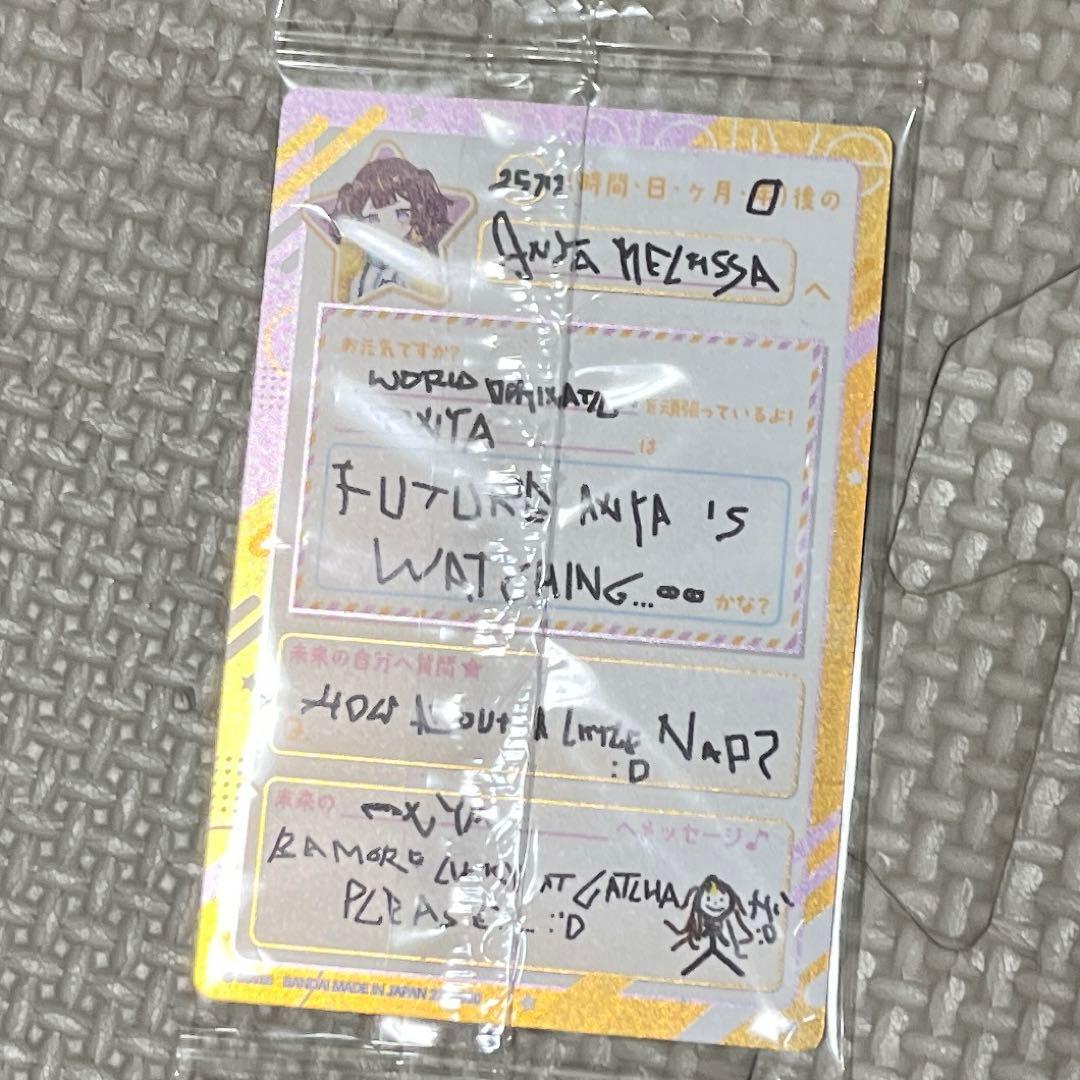 2572 時間・日・ヶ月・年後の
ANYA MELISSA
へ
お元気ですか?
WORLD
を頑張っているよ!
は
FUTURE ANYA 'S
WATCHING...
かな?
未来の自分へ質問★
HOW ABOUT A LITTLE NAP?
:D
未来の
へメッセージ♪
AT GATCHA
PLEASE... :D
:D
BANDAI MADE IN JAPAN